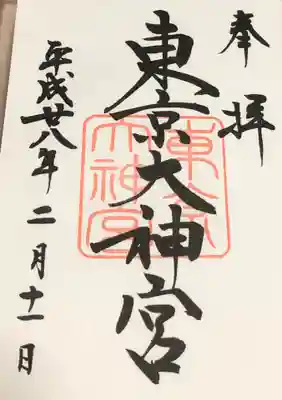 奉拝
東京大神宮
平成廿八年二月十一日
東京
大神宮